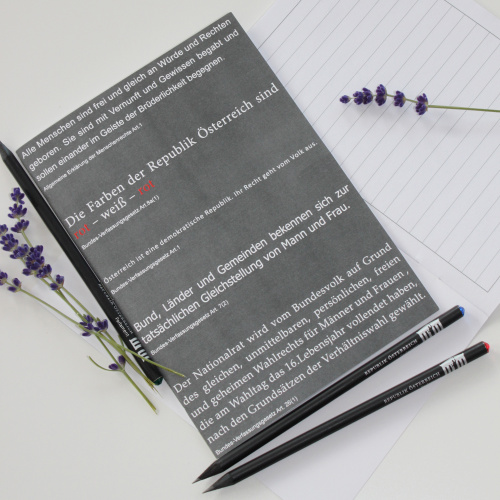 Alle Menschen sind frei und gleich an Würde und Rechten
geboren. Sie sind mit Vernunft und Gewissen begabt und
sollen einander im Geiste der Brüderlichkeit begegnen.
Allgemeine Erklärung der Menschenrechte Art.1
Die Farben der Republik Österreich sind
rot – weiß – rot
Bundes-Verfassungsgesetz Art.8a(1)
Österreich ist eine demokratische Republik. Ihr Recht geht vom Volk aus.
Bundes-Verfassungsgesetz Art.1
Bund, Länder und Gemeinden bekennen sich zur
tatsächlichen Gleichstellung von Mann und Frau.
Bundes-Verfassungsgesetz Art. 7(2)
Der Nationalrat wird vom Bundesvolk auf Grund
des gleichen, unmittelbaren, persönlichen, freien
und geheimen Wahlrechts für Männer und Frauen,
die am Wahltag das 16.Lebensjahr vollendet haben,
nach den Grundsätzen der Verhältniswahl gewählt.
Bundes-Verfassungsgesetz Art. 26(1)
REPUBLIK ÖSTERREICH
REPUBLIK ÖSTERREICH